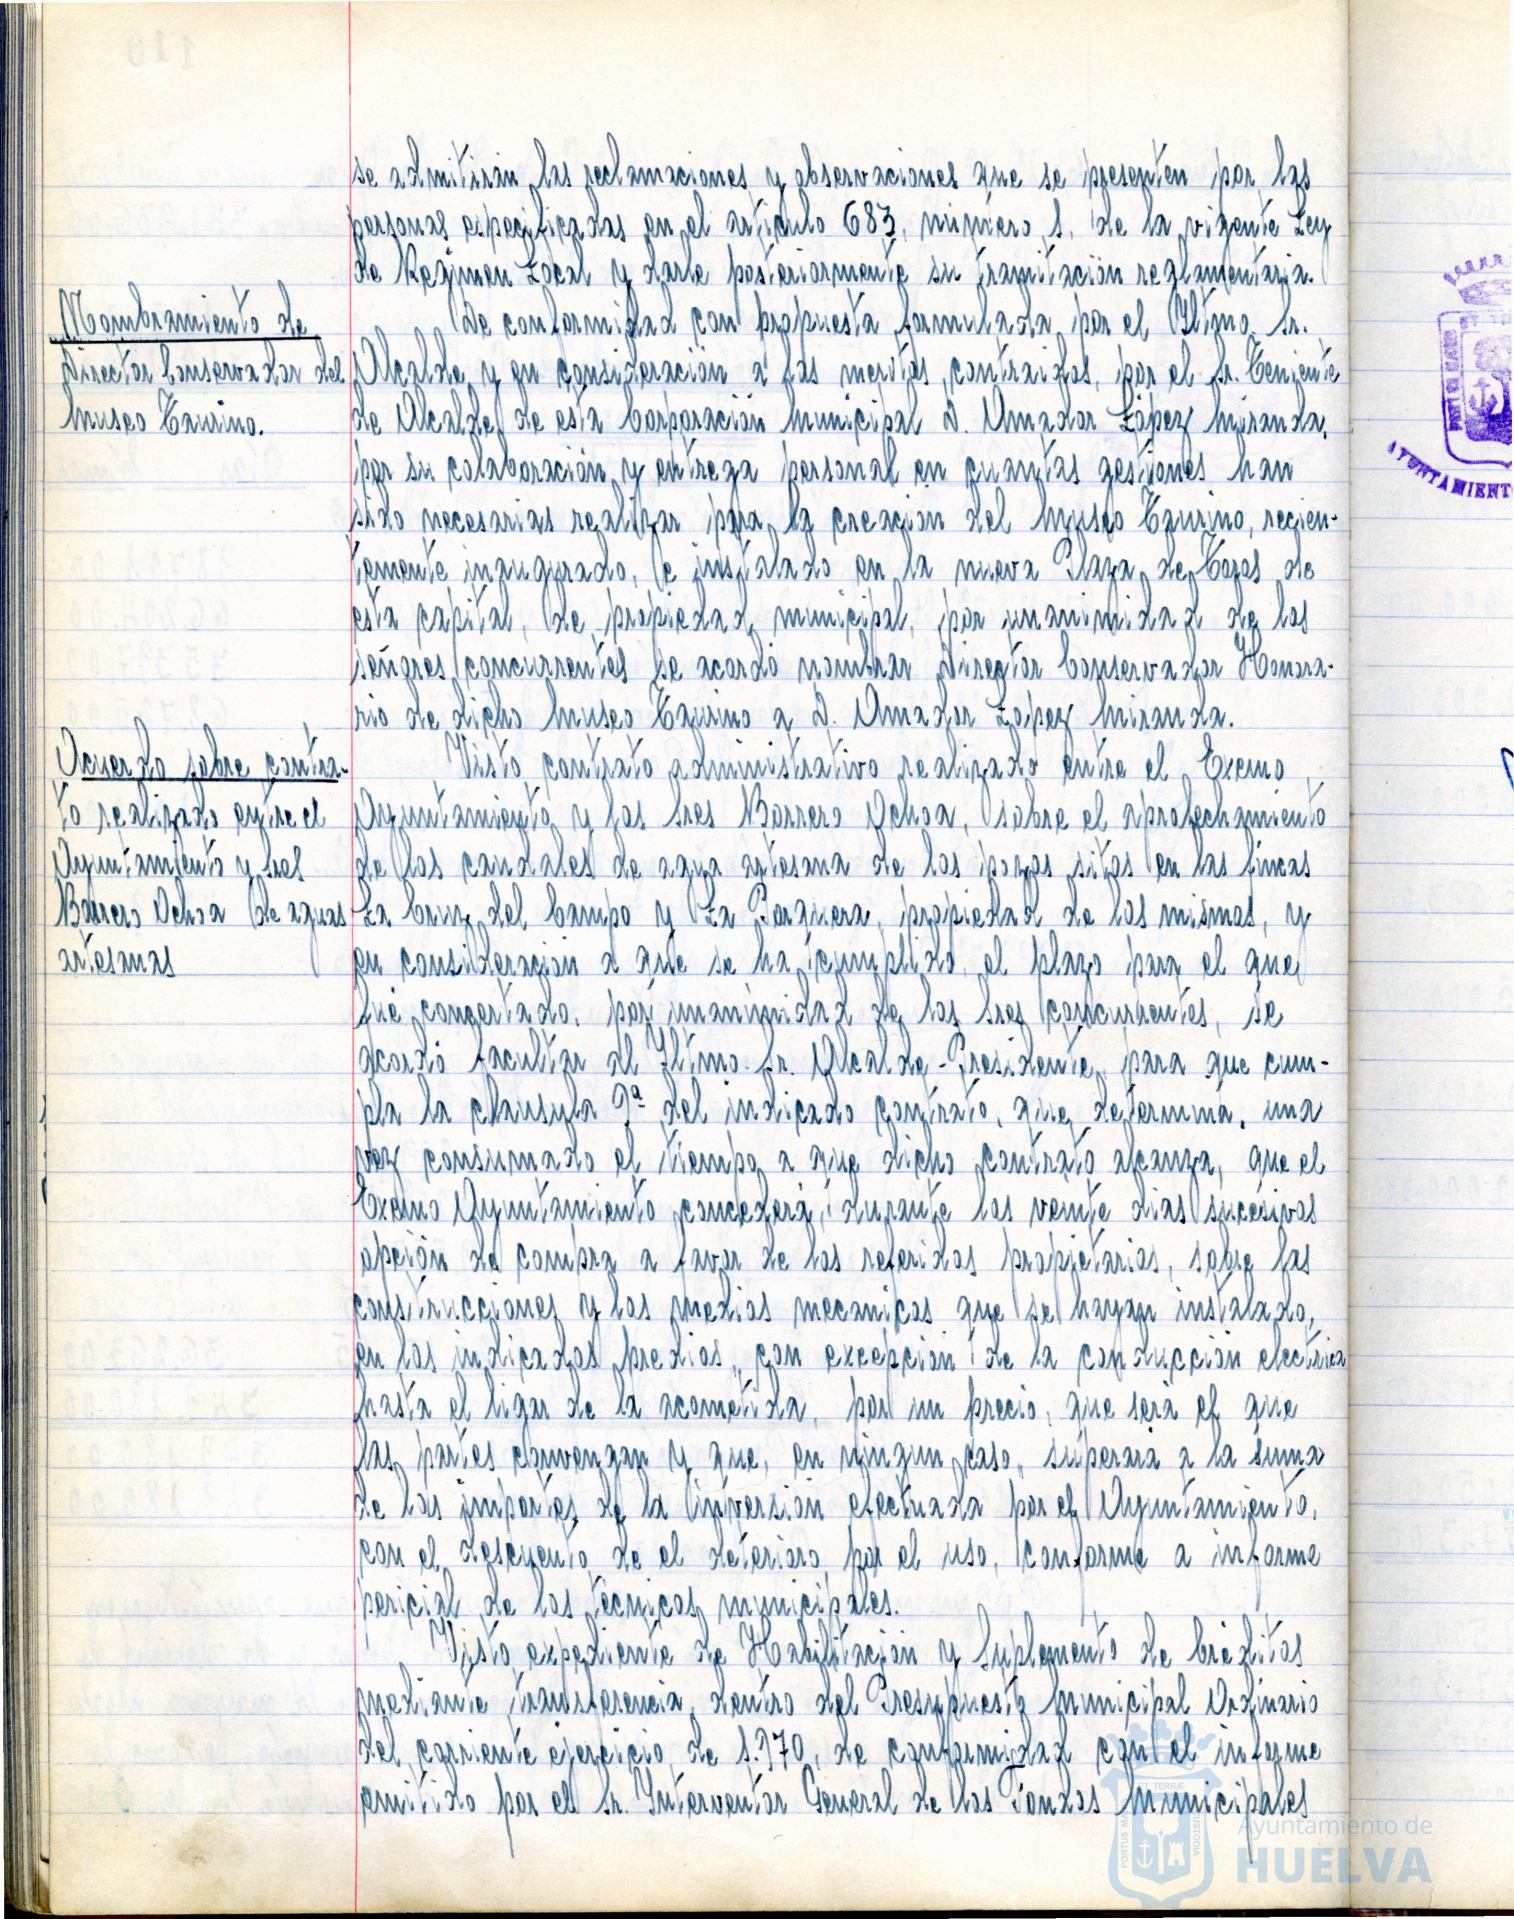 se admitirán las reclamaciones y observaciones que se presenten por las
personas especificadas en el artículo 683, número 1, de la vigente Ley
de Regimen Local y darle posteriormente su tramitación reglamentaria.
Nombramiento de
Director Conservador del
Museo Taurino.
De conformidad con propuesta formulada por el Iltmo. Sr.
Alcalde y en consideración a los meritos contraidos, por el Sr. Teniente
de Alcalde, de esta Corporación Municipal D. Amador López Miranda,
por su colaboración y entrega personal en cuantas gestiones han
sido necesarias realizar para la creación del Museo Taurino, recien-
temente inaugurado, e instalado en la nueva Plaza de Toros de
esta capital, de propiedad municipal, por unanimidad de los
señores concurrentes se acordó nombrar Director Conservador Honora-
rio de dicho Museo Taurino a D. Amador López Miranda.
Acuerdo sobre contra-
to realizado entre el
Ayuntamiento y sres
Barrero Ochoa de aguas
artesanas
Visto contrato administrativo realizado entre el Excmo
Ayuntamiento y los Sres Barrero Ochoa, sobre el aprovechamiento
de los caudales de agua artesana de los pozos sitos en las fincas
La Cruz del Campo y La Parquera, propiedad de los mismos, y
en consideración a que se ha cumplido el plazo para el que
fué concertado, por unanimidad de los Sres concurrentes, se
acordó facultar al Iltmo. Sr. Alcalde-Presidente, para que cum-
pla la clausula 9ª del indicado contrato, que determina, una
vez consumado el tiempo a que dicho contrato alcanza, que el
Excmo Ayuntamiento concederá, durante los veinte dias sucesivos
opción de compra a favor de los referidos propietarios, sobre las
construcciones y los medios mecanicos que se hayan instalado,
en los indicados predios, con excepción de la conducción electrica
hasta el ligar de la acometida, por un precio, que será el que
las partes convengan y que, en ningun caso, superará a la suma
de los importes de la inversión efectuada por el Ayuntamiento,
con el descuento de el deterioro por el uso, conforme a informe
pericial de los técnicos municipales.
Visto expediente de Habilitación y Suplemento de Créditos
mediante transferencia, dentro del Presupuesto Municipal Ordinario
del corriente ejercicio de 1.970, de conformidad con el informe
emitido por el Sr. Interventor General de los Fondos Municipales
AYUNTAMIENTO
Ayuntamiento de
HUELVA